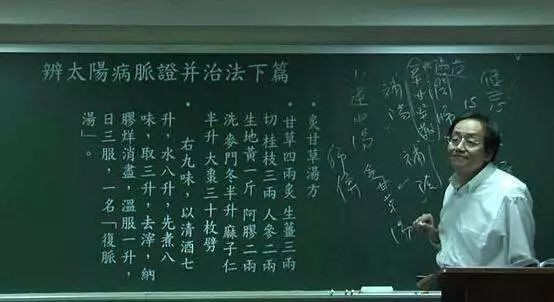 辨太陽病脈證并治法下篇
• 炙甘草湯方
甘草四兩炙 生薑三兩
切桂枝三兩 人參二兩
生地黃一斤 阿膠二兩
洗 麥門冬半升 麻子仁
半升 大棗三十枚劈
• 右九味，以清酒七
升，水八升，先煮八
味，取三升，去滓，納
膠烊消盡，溫服一升，
日三服，一名「復脈
湯」。
15
補
炙甘草湯
小建中湯